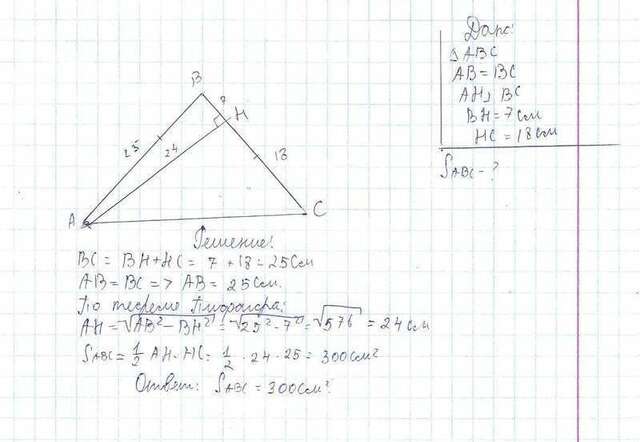 Дано:
△ ABC
AB = BC
AH ⟂ BC
BH = 7 см
HC = 18 см
S ABC - ?
B
7
H
25
24
18
A
C
Решение:
BC = BH + HC = 7 + 18 = 25 см
AB = BC => AB = 25 см.
По теореме Пифагора:
AH = √AB² - BH² = √25² - 7² = √576 = 24 см
S ABC = 1/2 AH · HC = 1/2 · 24 · 25 = 300 см²
Ответ: S ABC = 300 см²